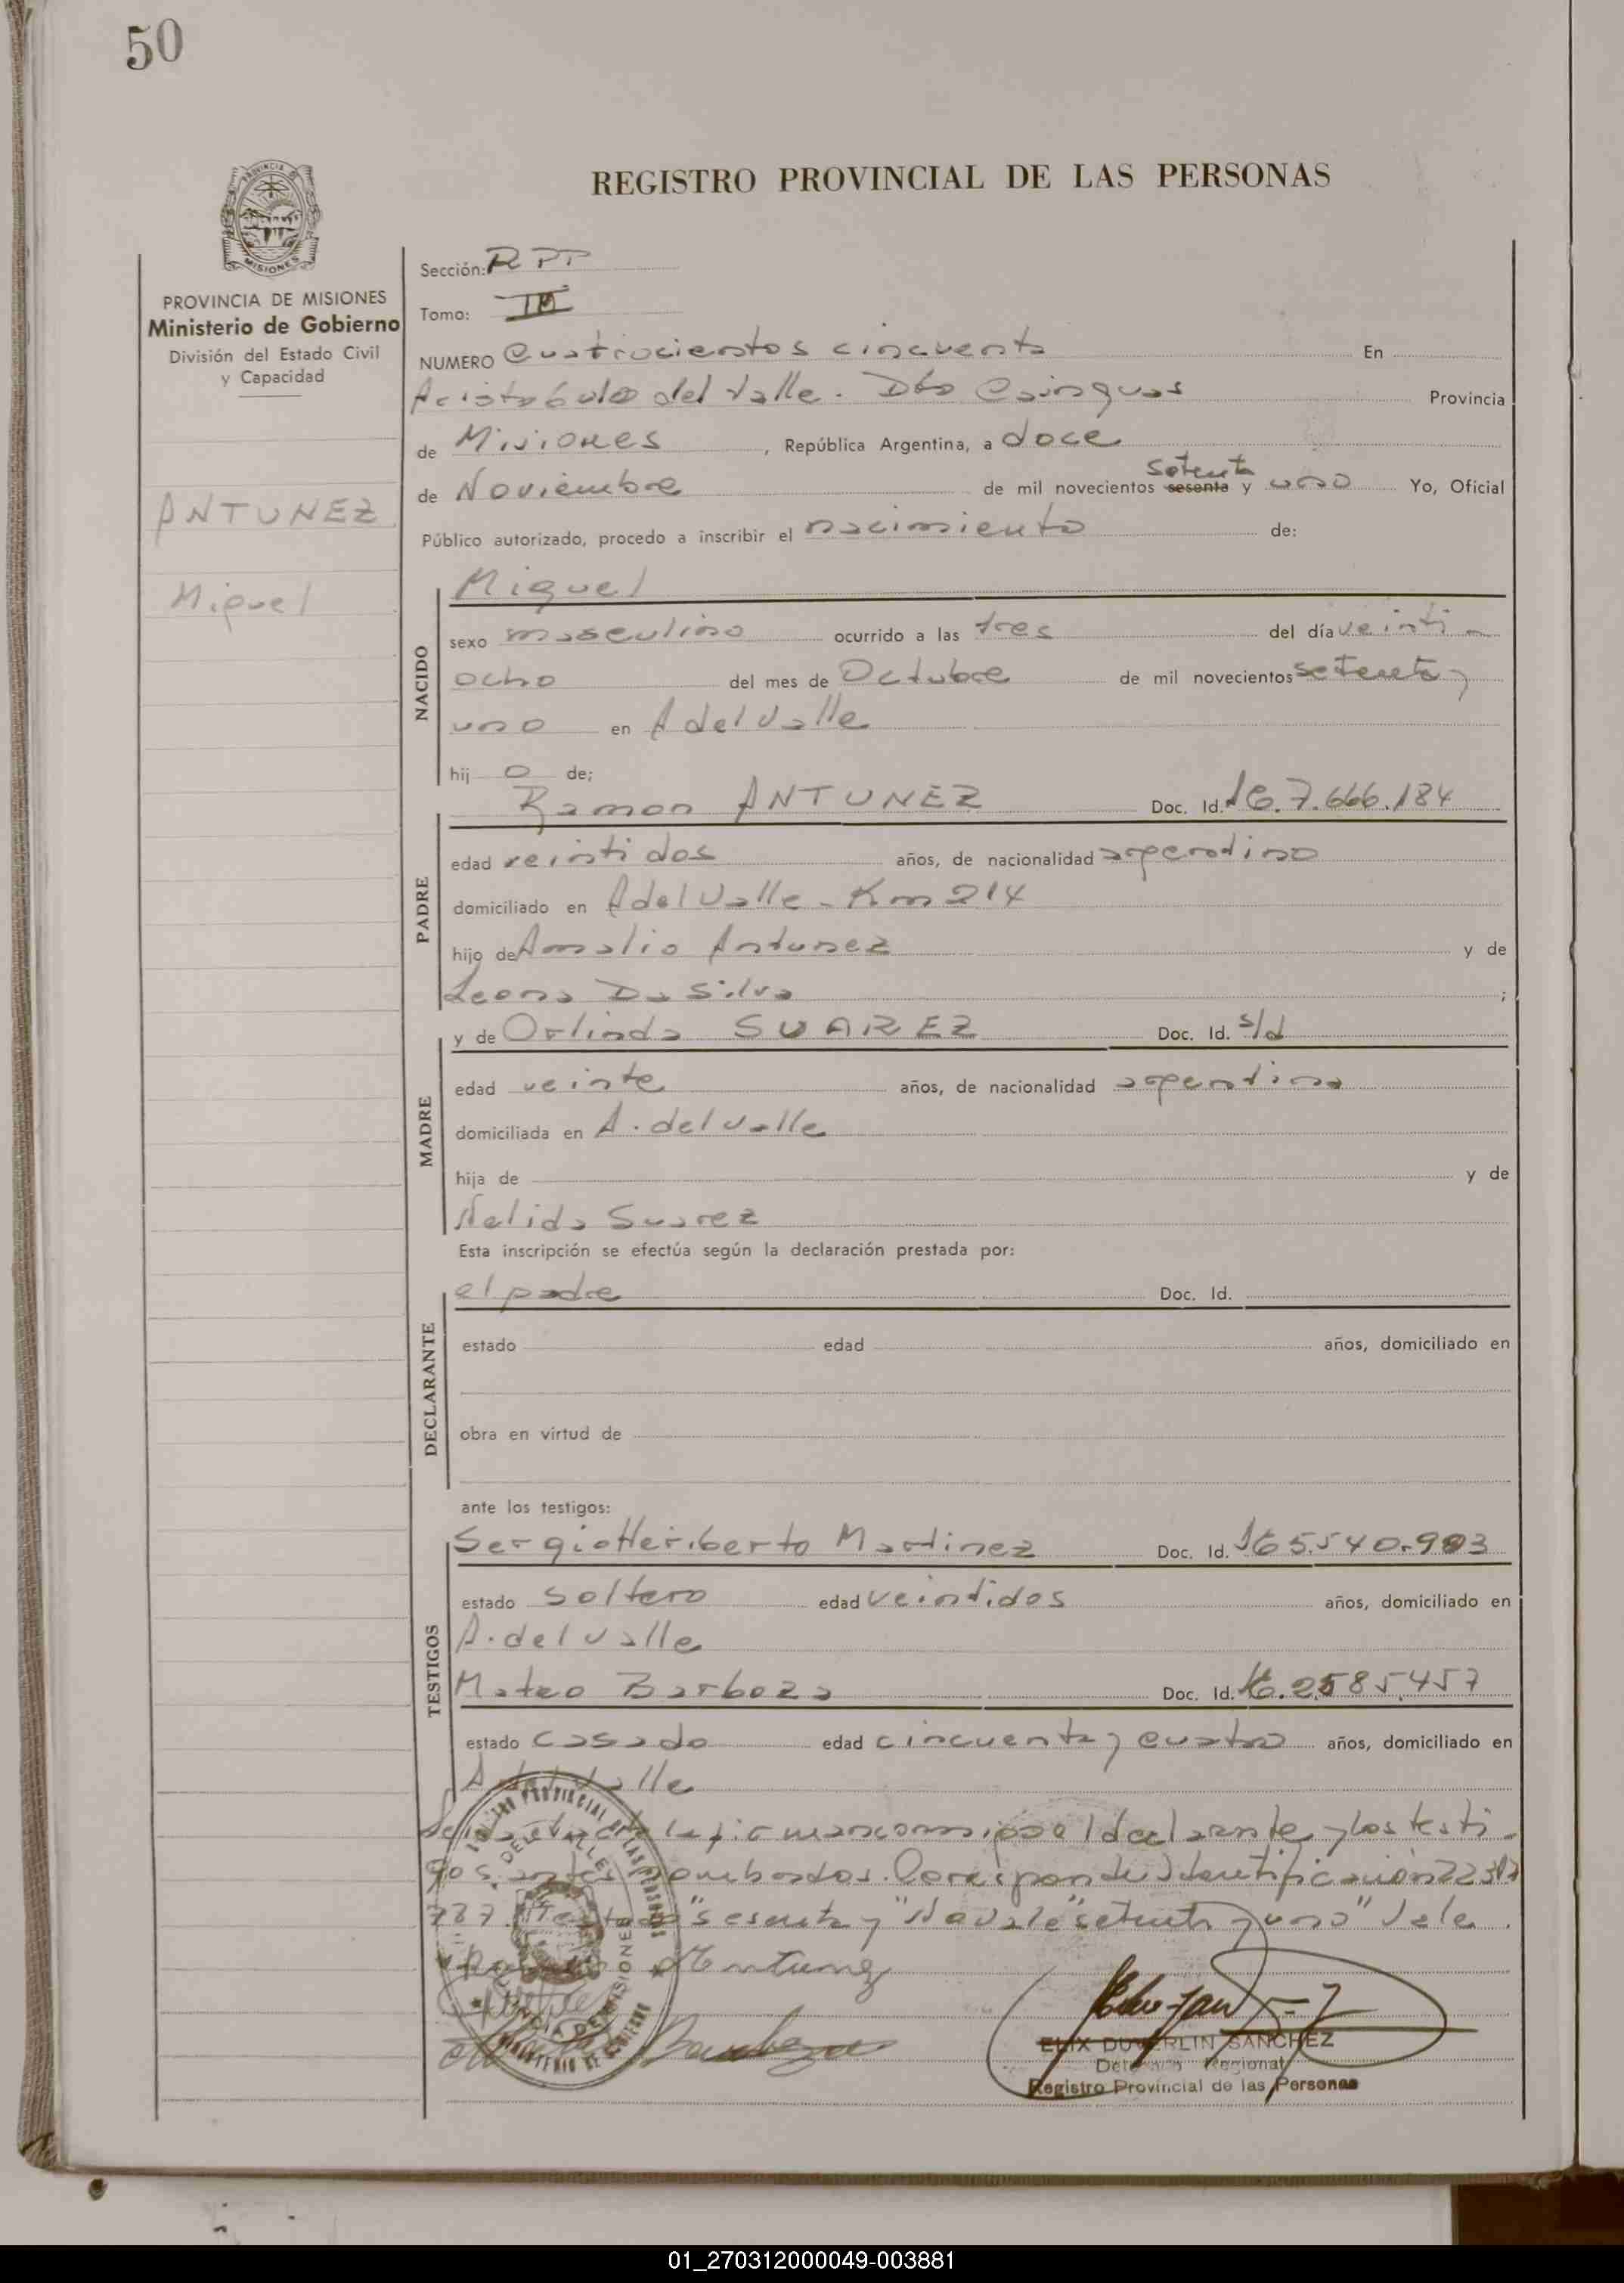 50
REGISTRO PROVINCIAL DE LAS PERSONAS
PROVINCIA DE
MISIONES
PROVINCIA DE MISIONES
Ministerio de Gobierno
División del Estado Civil
y Capacidad
ANTUNEZ
Miguel
Sección: RPP
Tomo: III
NUMERO Cuatrocientos cincuenta En
Aristobulo del Valle. Dto Cainguas Provincia
de Misiones, República Argentina, a doce
de Noviembre de mil novecientos sesenta setenta y uno Yo, Oficial
Público autorizado, procedo a inscribir el nacimiento de:
NACIDO
Miguel
sexo masculino ocurrido a las tres del día veinti-
ocho del mes de Octubre de mil novecientos setenta y
uno en A del Valle
hij o de;
PADRE
Ramon ANTUNEZ Doc. Id. 7.666.184
edad veintidos años, de nacionalidad argentino
domiciliado en A del Valle - Km 214
hijo de Amalio Antunez y de
Leona Da Silva ;
MADRE
y de Orlinda SUAREZ Doc. Id. s/d
edad veinte años, de nacionalidad argentina
domiciliada en A. del Valle
hija de y de
Nelida Suarez
Esta inscripción se efectúa según la declaración prestada por:
DECLARANTE
el padre Doc. Id.
estado edad años, domiciliado en
obra en virtud de
ante los testigos:
TESTIGOS
Sergio Heriberto Martinez Doc. Id. 5.540.903
estado soltero edad veintidos años, domiciliado en
A. del Valle
Mateo Barboza Doc. Id. 2.585.457
estado casado edad cincuenta y cuatro años, domiciliado en
A del Valle
la firman conmigo el declarante y los testi-
gos antes nombrados. Corresponde Identificación
787. Testado "sesenta y" No vale "setenta y uno" Vale.
Antunez
Barboza
ELIX DUVERLIN SANCHEZ
Delegado Regional
Registro Provincial de las Personas
01_270312000049-003881